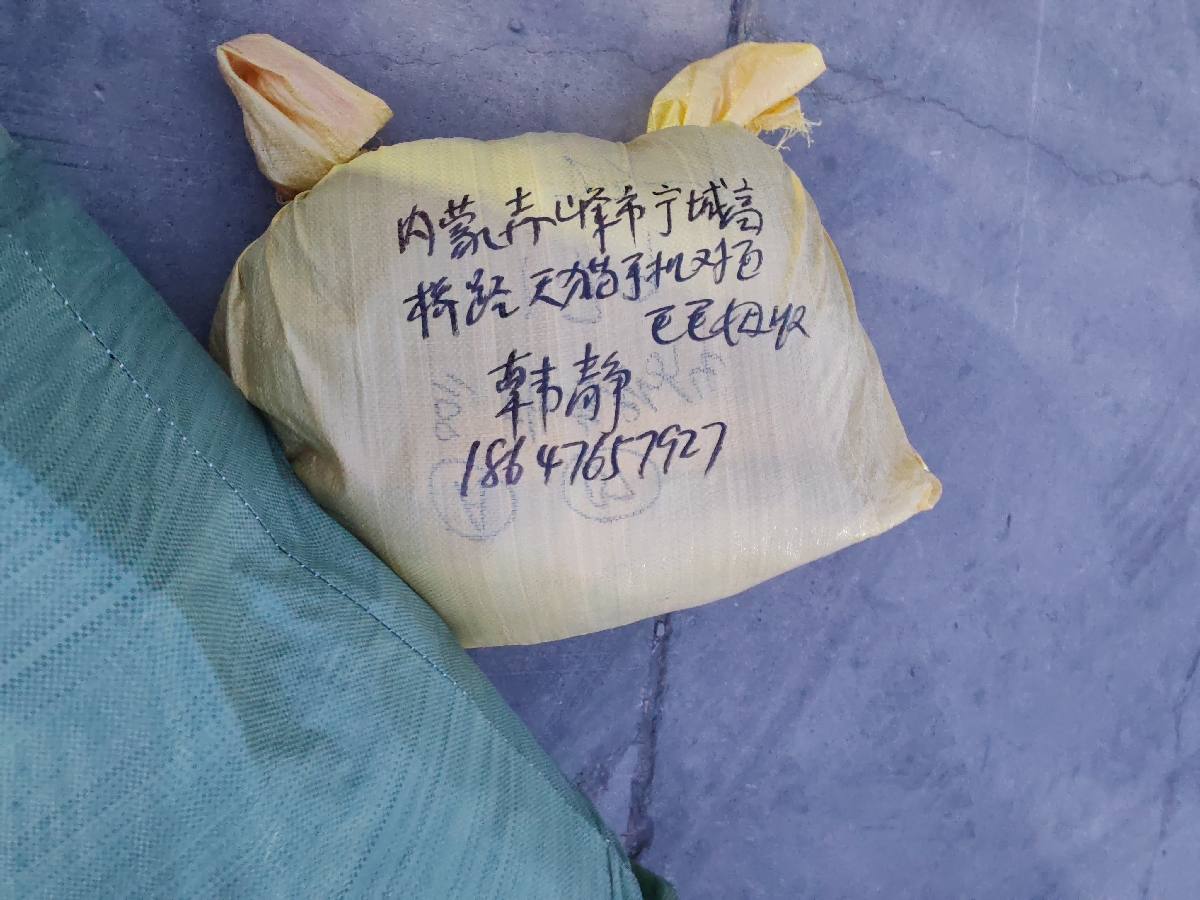 内蒙赤峰市宁城高
桥路天猫手机对包
毛毛毋收
韩静
18647657927